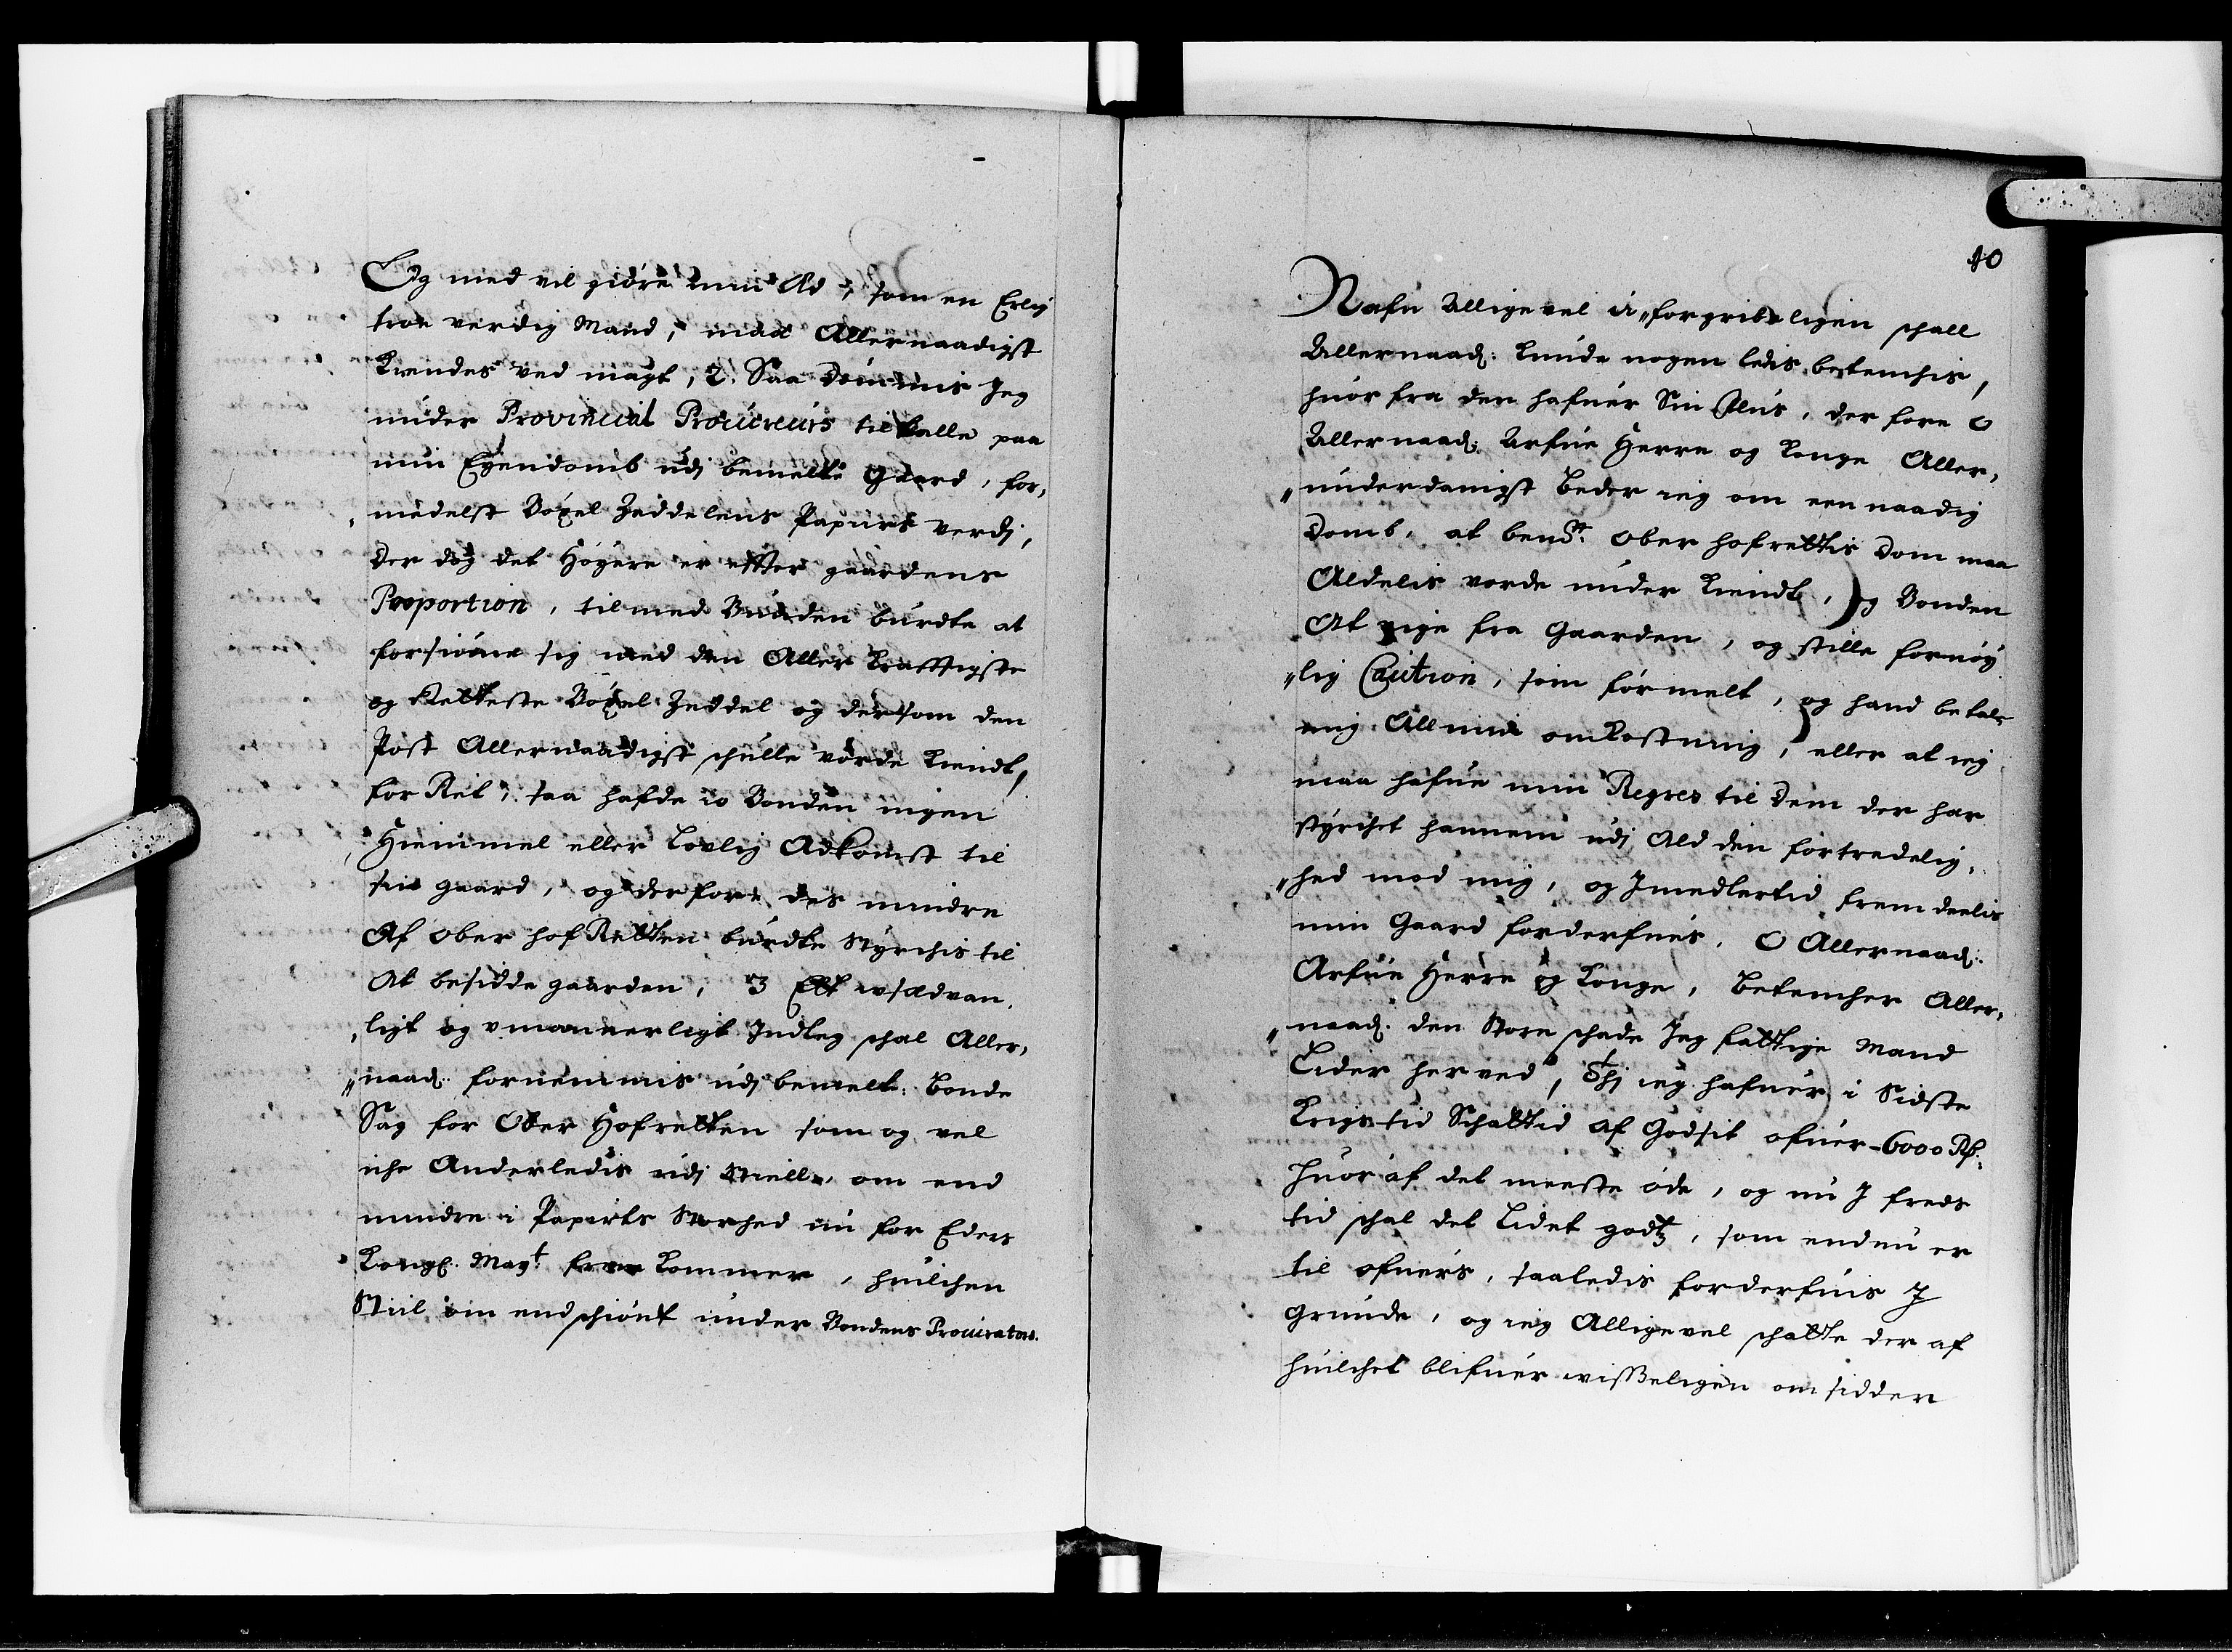 Og med vil giöre min Æd, som en Erlig
troe verdig Mand, maa Allernaadigst
Kiendes ved magt, 2. Saa dømmis Jeg
under Provincial Procureurs tiltalle paa
min Egendomb udj bemelte Gaard, for,
„medelst Böxel Zeddelens Papiirs verdj,
der dog det Höyere er efter gaardens
Proportion, til med Bunden burdte at
forsiöne sig med den Aller Krafftigste
og Retteste Böxel Zeddel og dersom den
Post Allernaadigst schulle vorde Kiendt,
for Ret, saa hafde io Bonden ingen
Hiemmel eller Lovlig Adkomst til
sin gaard, og derfore des mindre
Af ober hof Retten burdte Styrchis til
At besidde gaarden, 3 Ett usædvan,
„ligt og vmaneerligt Indleg schal Aller,
„naad: fornemmis udj bemelt: Bonde
Sag for Ober Hofretten som og vel
iche Anderledis udj Stiill, om end
mindre i Papirts Storhed nu for Eders
Kongl. Mayt frem Kommer, huilchen
Stiil om endschiönt under Bondens Procurators.
10
Nafn Alligevel u„forgribeligen schall
Allernaad: Kunde nogen ledis betenchis,
huor fra den hafuer Sin flus, der fore O
Allernaad: Arfue Herre og Konge Aller,
„underdanigst beder ieg om een naadig
Domb, at bemte ober hofrettis Dom maa
Aldelis vorde under Kiendt, og Bonden
At vige fra Gaarden, og stille fornöy
„lig Caution, som för melt, og hand betale
mig All min omkostning, eller at ieg
maa hafue min Regres til dem der har
styrchet hannem udj Ald den fortredelig,
„hed mod mig, og Jmedlertid frem deelis
min Gaard forderfues. O Allernaad:
Arfue Herre og Konge, betencher Aller,
„naad: den Store schade Jeg fattige Mand
Lider herved, Thj ieg hafuer i Sidste
Krigs tid Schattid af Godsit ofuer 6000 Rf:
huor af det meeste öde, og nu J freds
tid schal det Lidet godtz, som endnu er
til ofuers, saaledis forderfuis J
Grunde, og ieg Alligevel schatte der af
huilchet blifuer visseligen om sidder